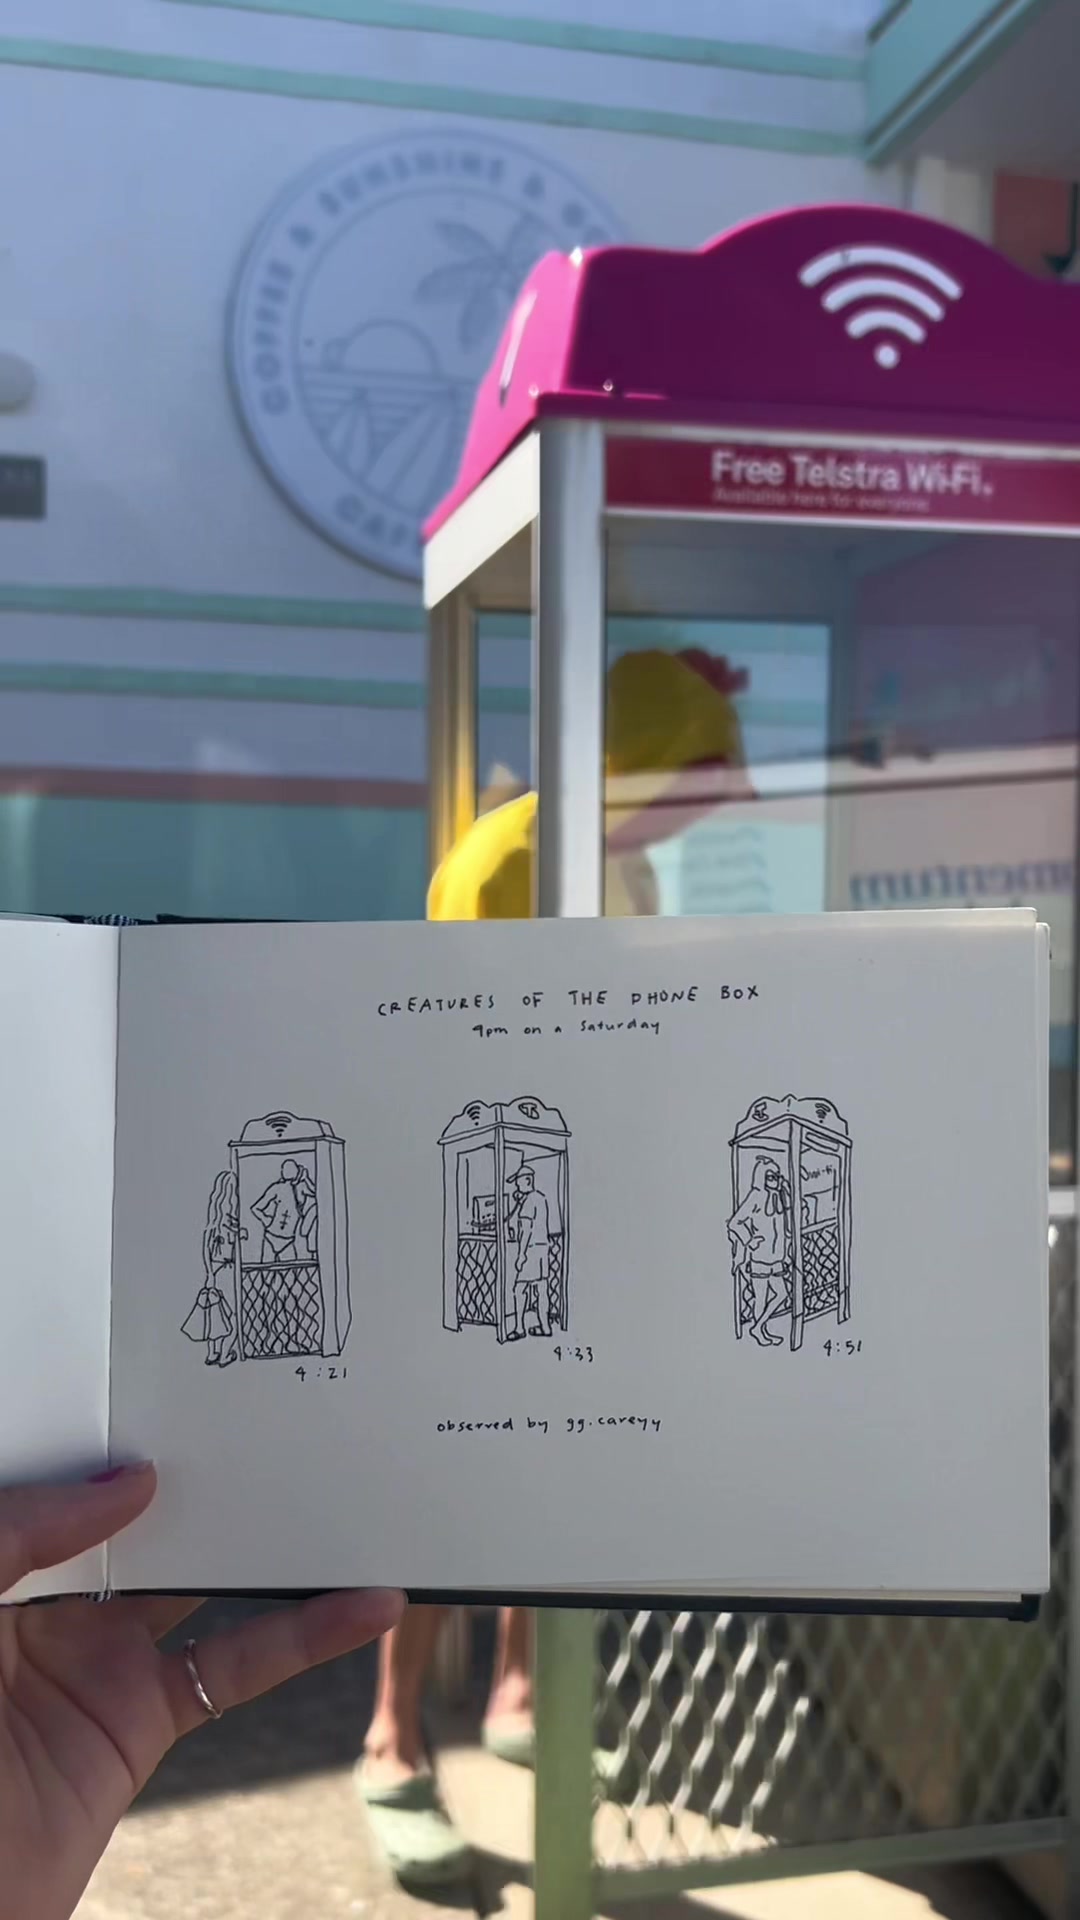 COFFEE & SUNSHINE &
CAFE
Free Telstra Wi-Fi.
Available here for everyone.
CREATURES OF THE PHONE BOX
4pm on a Saturday
Wi-Fi
4:21
4:33
4:51
observed by gg.careyy